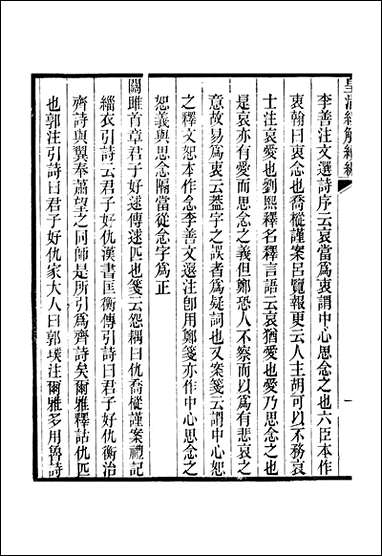 皇清經解續編
一
李善注文選詩序云哀當爲衷謂中心思念之也六臣本作
衷翰曰衷念也喬樅謹案呂覽報更云人主胡可以不務哀
士注哀愛也劉熙釋名釋言語云哀猶愛也愛乃思念之也
是哀亦有愛而思念之義但鄭恐人不察而以爲有悲哀之
意故易爲衷云蓋字之誤者爲疑詞也又案箋云謂中心恕
之釋文恕本作念李善文選注卽用鄭箋亦作中心思念之
恕義與思念隔當從念字爲正
關雎首章君子好逑傳逑匹也箋云怨耦曰仇喬樅謹案禮記
緇衣引詩云君子好仇漢書匡衡傳引詩曰君子好仇衡治
齊詩與翼奉蕭望之同師是所引爲齊詩矣爾雅釋詁仇匹
也郭注引詩曰君子好仇家大人曰郭璞注爾雅多用魯詩